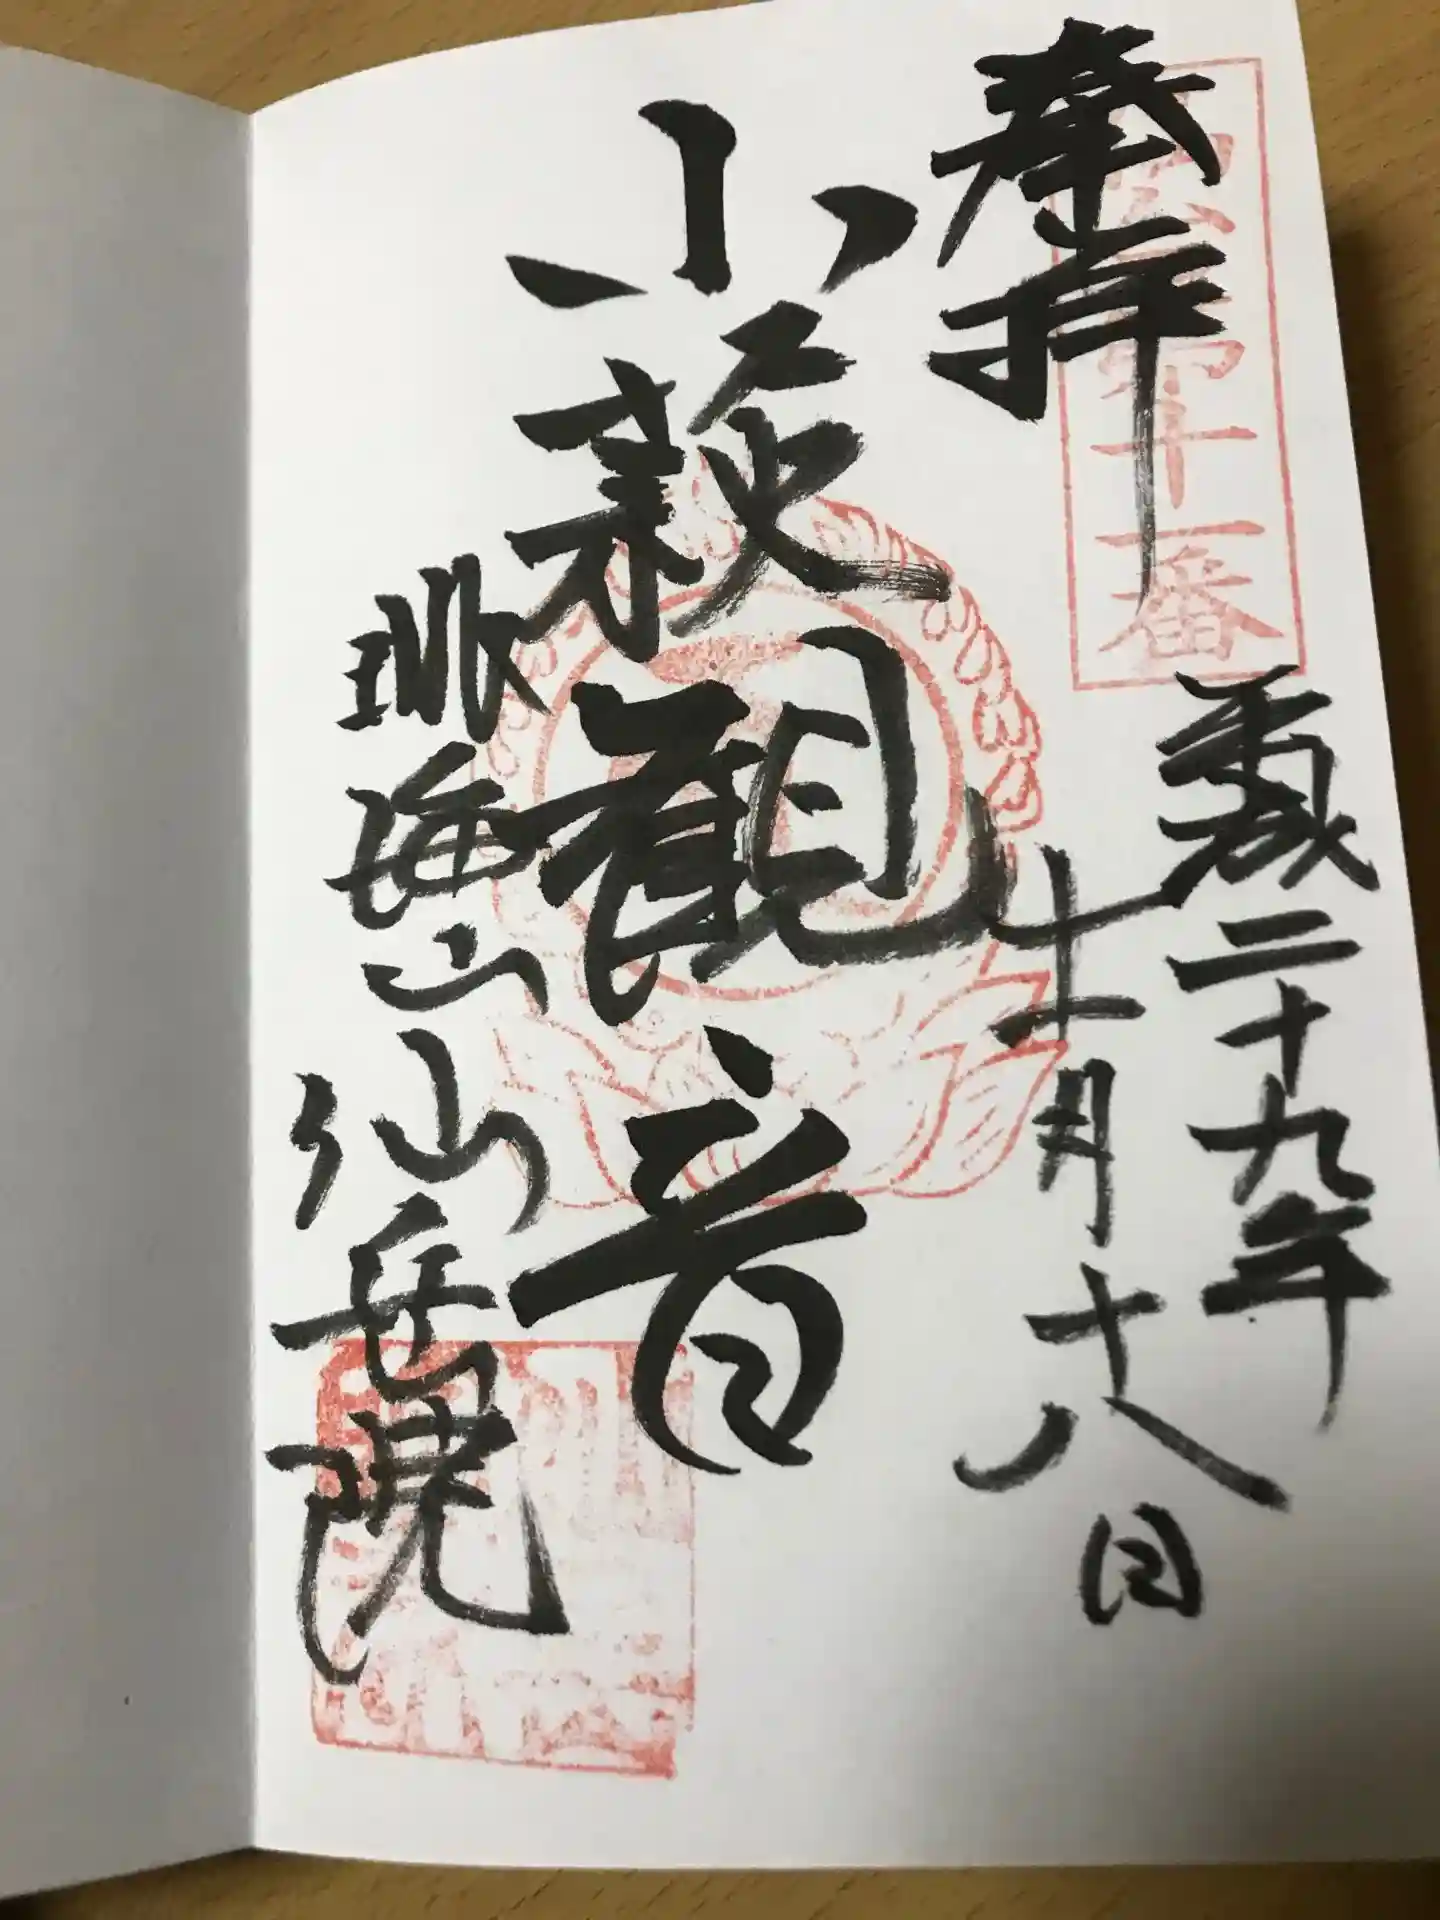 奉拝
十一番
平成二十九年
十一月十八日
小萩観音
眺海山
仙岳院